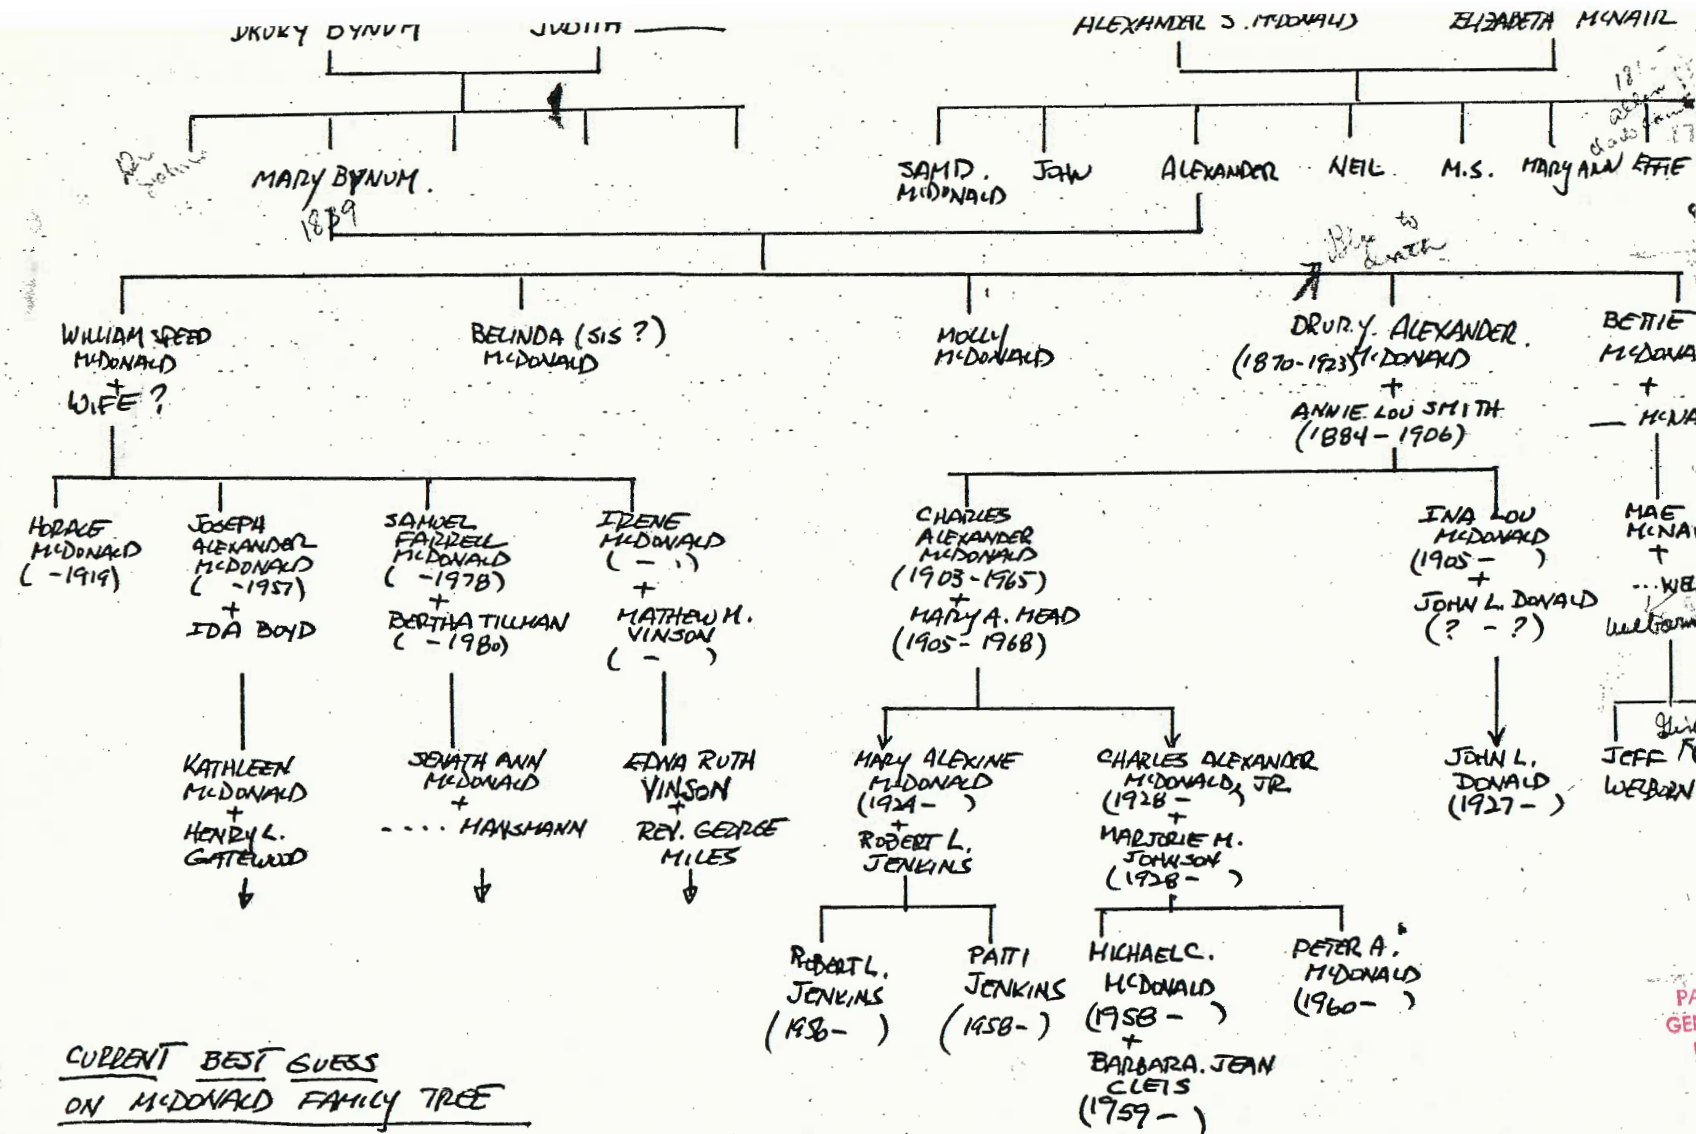 DRURY BYNUM JUDITH
ALEXANDER S. McDONALD ELIZABETH McNAIR
MARY BYNUM.
1839
SAM D.
McDONALD
JOHN
ALEXANDER
NEIL
M.S.
MARY ANN
EFFIE
to
death
WILLIAM SPEED
McDONALD
+
WIFE?
BELINDA (SIS?)
McDONALD
MOLLY
McDONALD
DRURY. ALEXANDER.
(1870-1923) McDONALD
+
ANNIE LOU SMITH
(1884-1906)
BETTIE
McDONA
+
McNA
HORACE
McDONALD
( -1919)
JOSEPH
ALEXANDER
McDONALD
( -1957)
+
IDA BOYD
SAMUEL
FARRELL
McDONALD
( -1978)
+
BERTHA TILLMAN
( -1980)
IRENE
McDONALD
( - )
+
MATHEW M.
VINSON
( - )
CHARLES
ALEXANDER
McDONALD
(1903-1965)
+
MARY A. MEAD
(1905-1968)
INA LOU
McDONALD
(1905- )
+
JOHN L. DONALD
(? - ?)
MAE
McNA
+
...WEL
KATHLEEN
McDONALD
+
HENRY L.
GATEWOOD
SENATH ANN
McDONALD
+
.... HANSMANN
EDNA RUTH
VINSON
+
REV. GEORGE
MILES
MARY ALEXINE
McDONALD
(1924- )
+
ROBERT L.
JENKINS
CHARLES ALEXANDER
McDONALD, JR.
(1928- )
+
MARJORIE M.
JOHNSON
(1928- )
JOHN L.
DONALD
(1927- )
JEFF
WELBORN
ROBERT L.
JENKINS
(1956- )
PATTI
JENKINS
(1958-)
MICHAEL C.
McDONALD
(1958- )
+
BARBARA. JEAN
CLEIS
(1959- )
PETER A.
McDONALD
(1960- )
CURRENT BEST GUESS
ON McDONALD FAMILY TREE